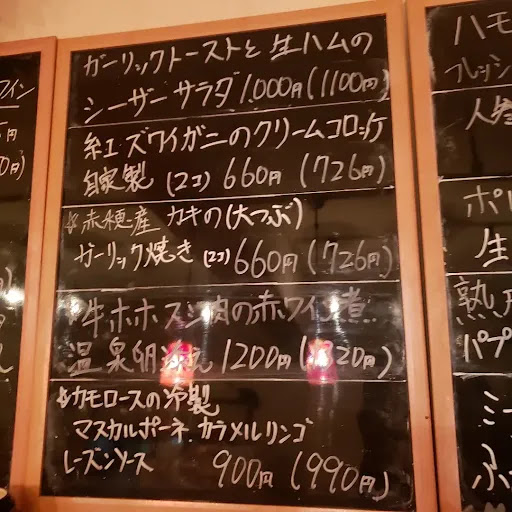 ガーリックトーストと生ハムの
シーザーサラダ 1,000円(1100円)
紅ズワイガニのクリームコロッケ
自家製 (2コ) 660円(726円)
赤穂産 カキの(大つぶ)
ガーリック焼き (2コ) 660円(726円)
牛ホホスジ肉の赤ワイン煮
温泉卵 1200円(1320円)
カモロースの冷製
マスカルポーネ カラメルリンゴ
レーズンソース 900円(990円)
ワイン
ハモ
フレッシ
人参
ポル
生
熟
パプ
ミー
ふ